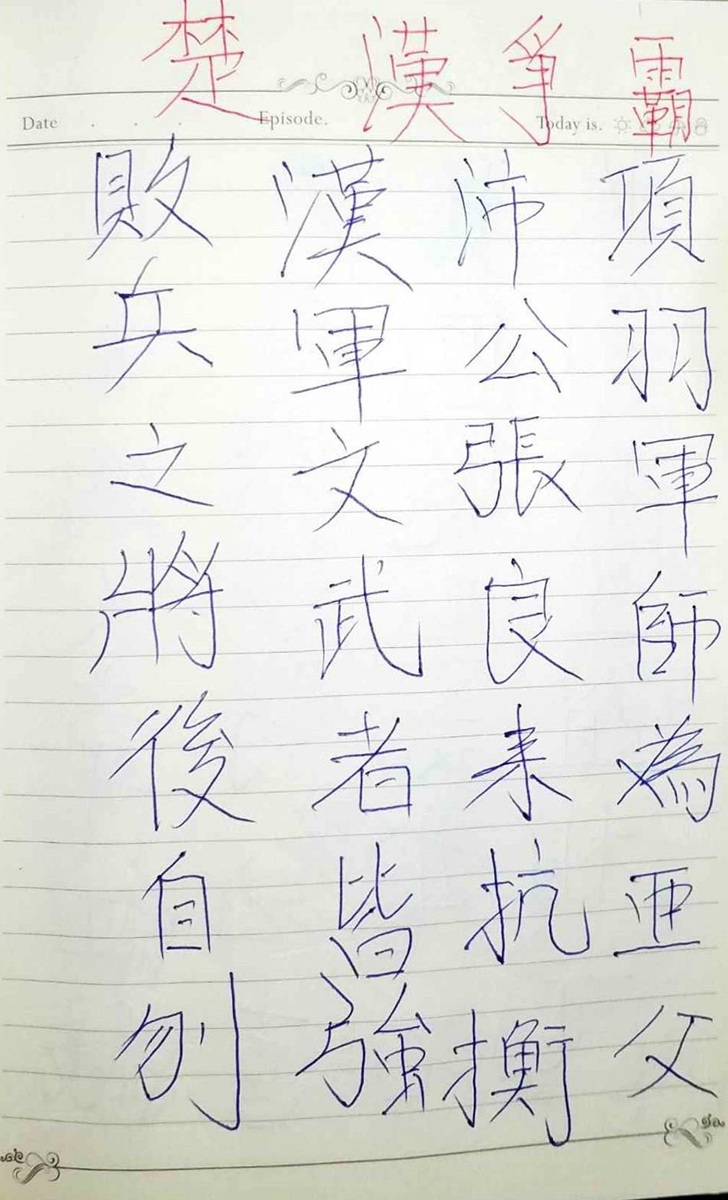 楚漢爭霸
Date . . . Episode. Today is.
項羽軍師為亜父
沛公張良来抗衡
漢軍文武者皆強
敗兵之將後自刎